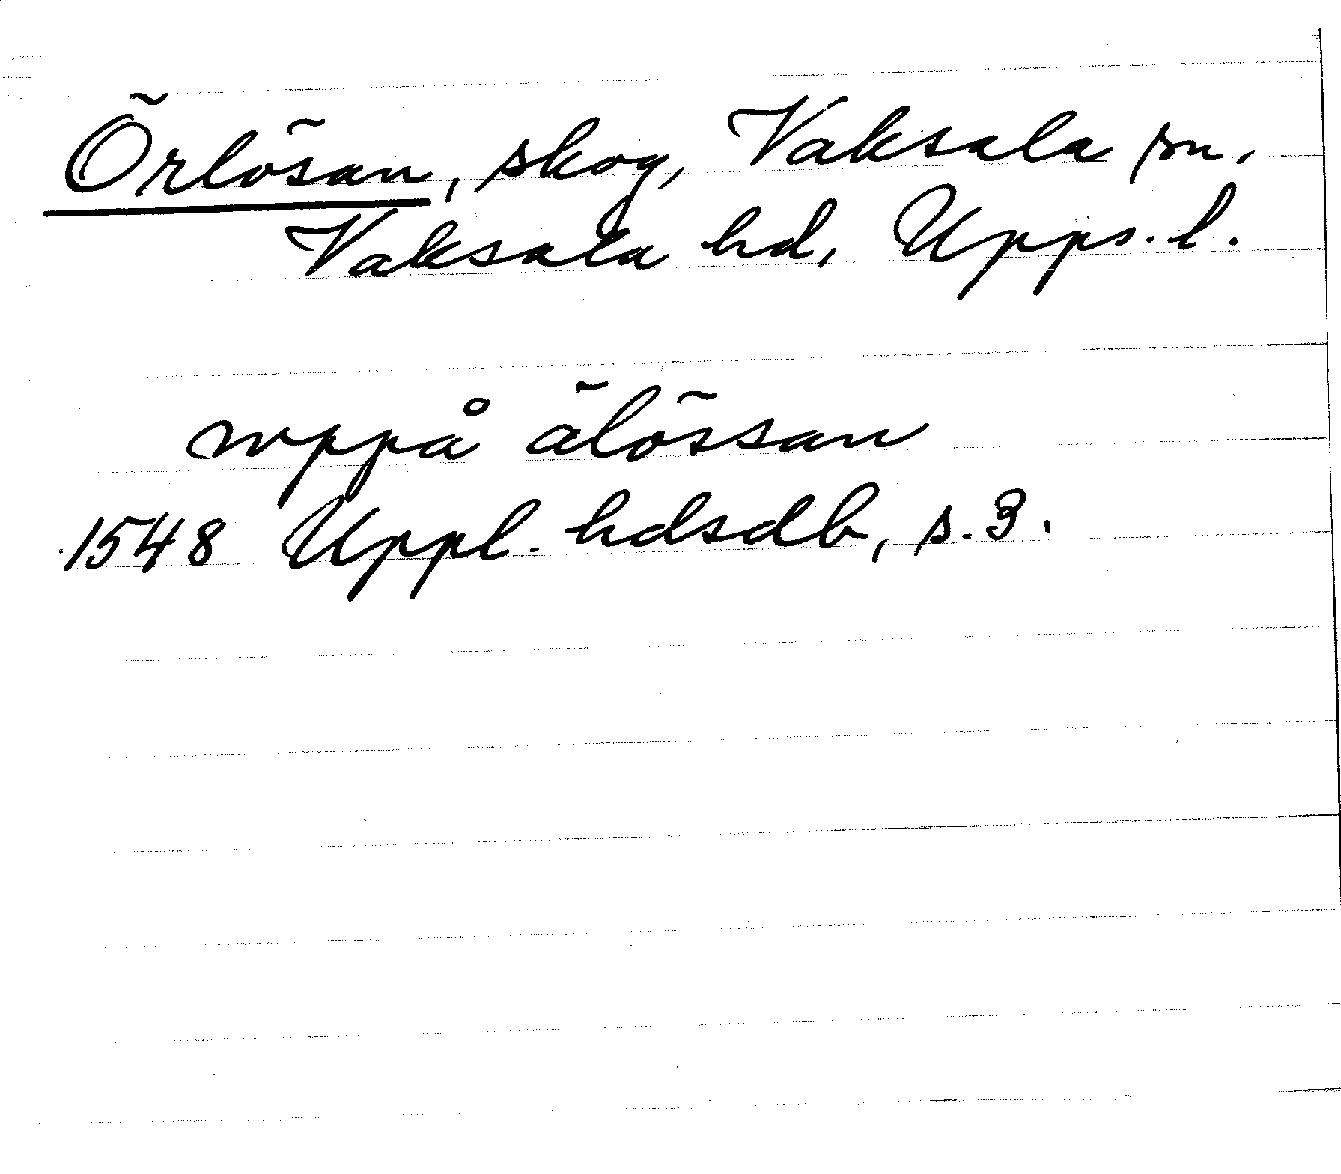 Örlösan, skog, Vaksala sn,
Vaksala hd, Upps. l.
wppå älössan
1548 Uppl. hdsdb, s. 3.